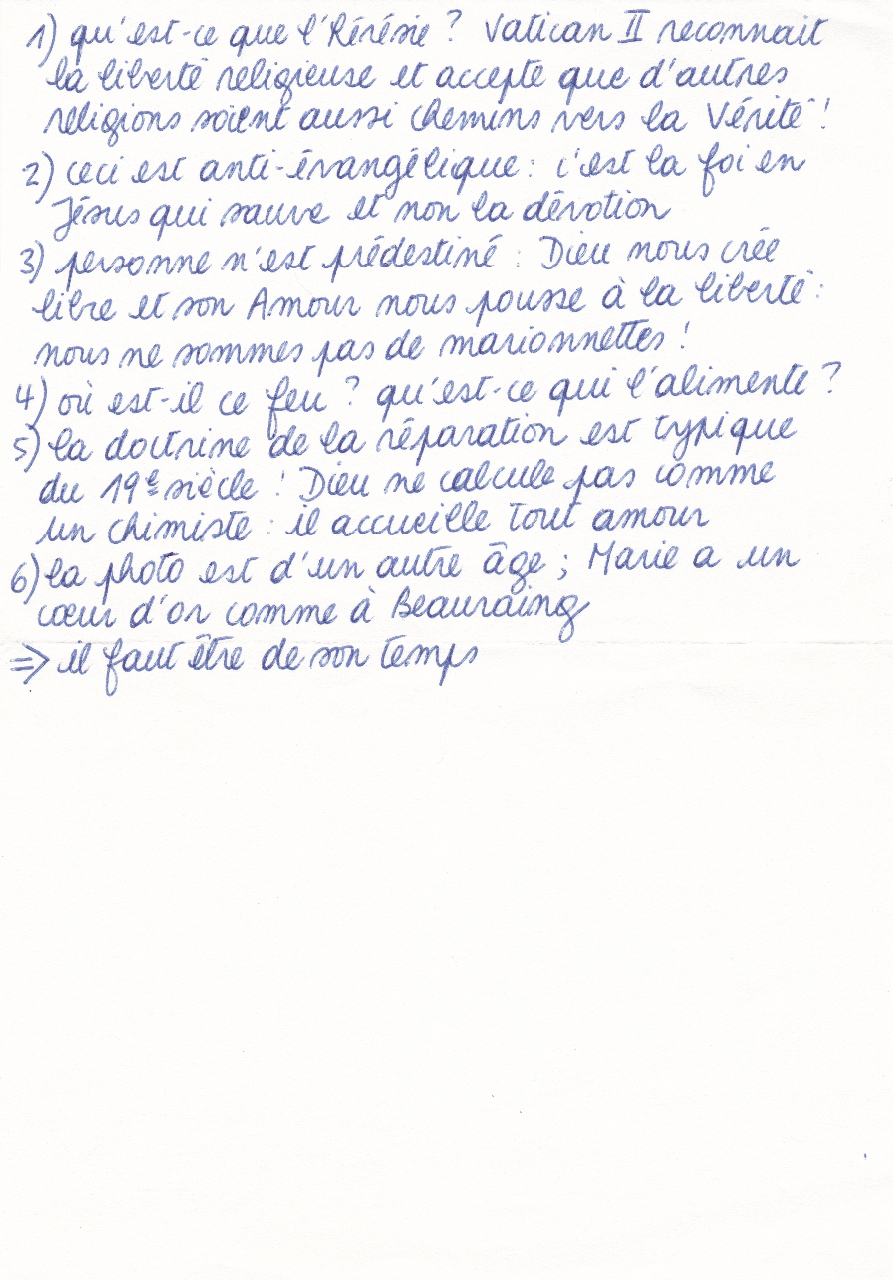 1) qu'est-ce que l'hérésie ? Vatican II reconnait
la liberté religieuse et accepte que d'autres
religions soient aussi chemins vers la Vérité !
2) ceci est anti-évangélique : c'est la foi en
Jésus qui sauve et non la dévotion
3) personne n'est prédestiné : Dieu nous crée
libre et son Amour nous pousse à la liberté :
nous ne sommes pas de marionnettes !
4) où est-il ce feu ? qu'est-ce qui l'alimente ?
5) la doctrine de la réparation est typique
du 19e siècle ! Dieu ne calcule pas comme
un chimiste : il accueille tout amour
6) la photo est d'un autre âge ; Marie a un
cœur d'or comme à Beauraing
=> il faut être de son temps